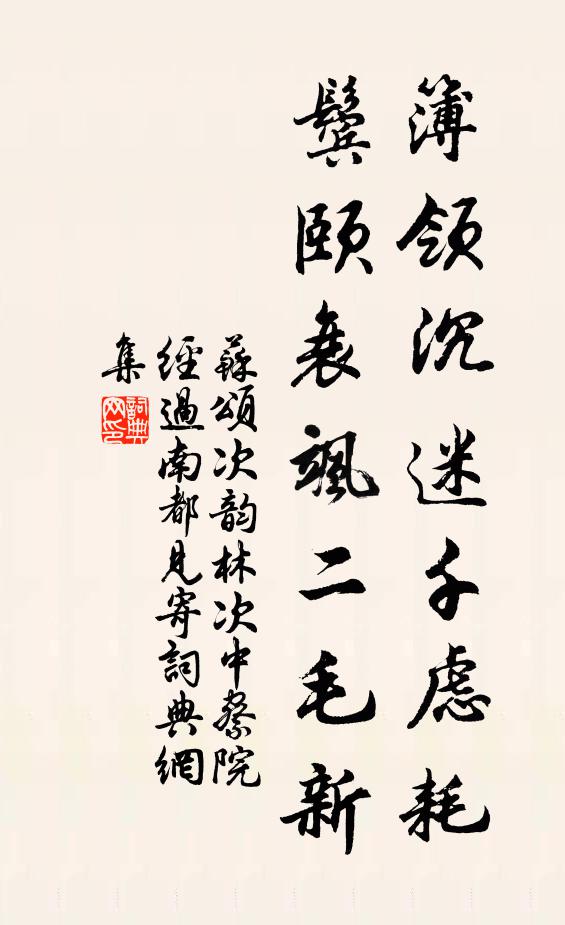 簿領沉迷千慮耗
鬢頤衰颯二毛新
蘇頌次韵林次中察院
經過南都見寄詞典網
集
詞典网印